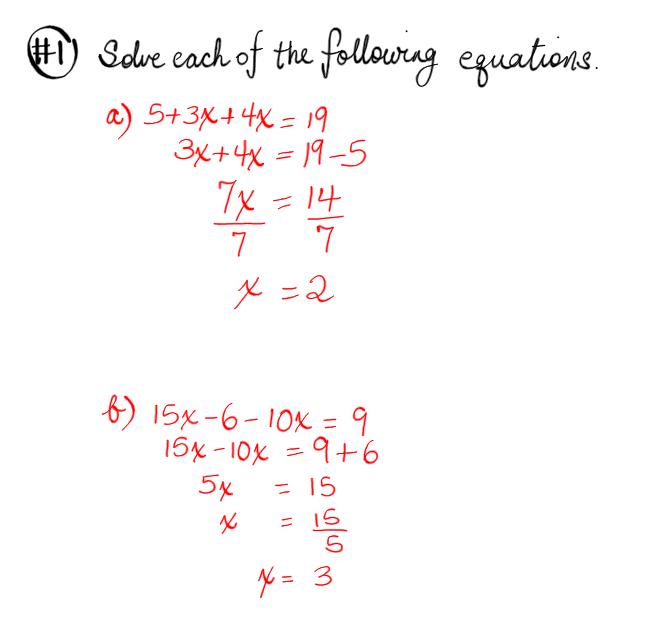 #1 Solve each of the following equations.
a) 5+3x+4x = 19
3x+4x = 19-5
7x/7 = 14/7
x = 2
b) 15x-6-10x = 9
15x-10x = 9+6
5x = 15
x = 15/5
x = 3